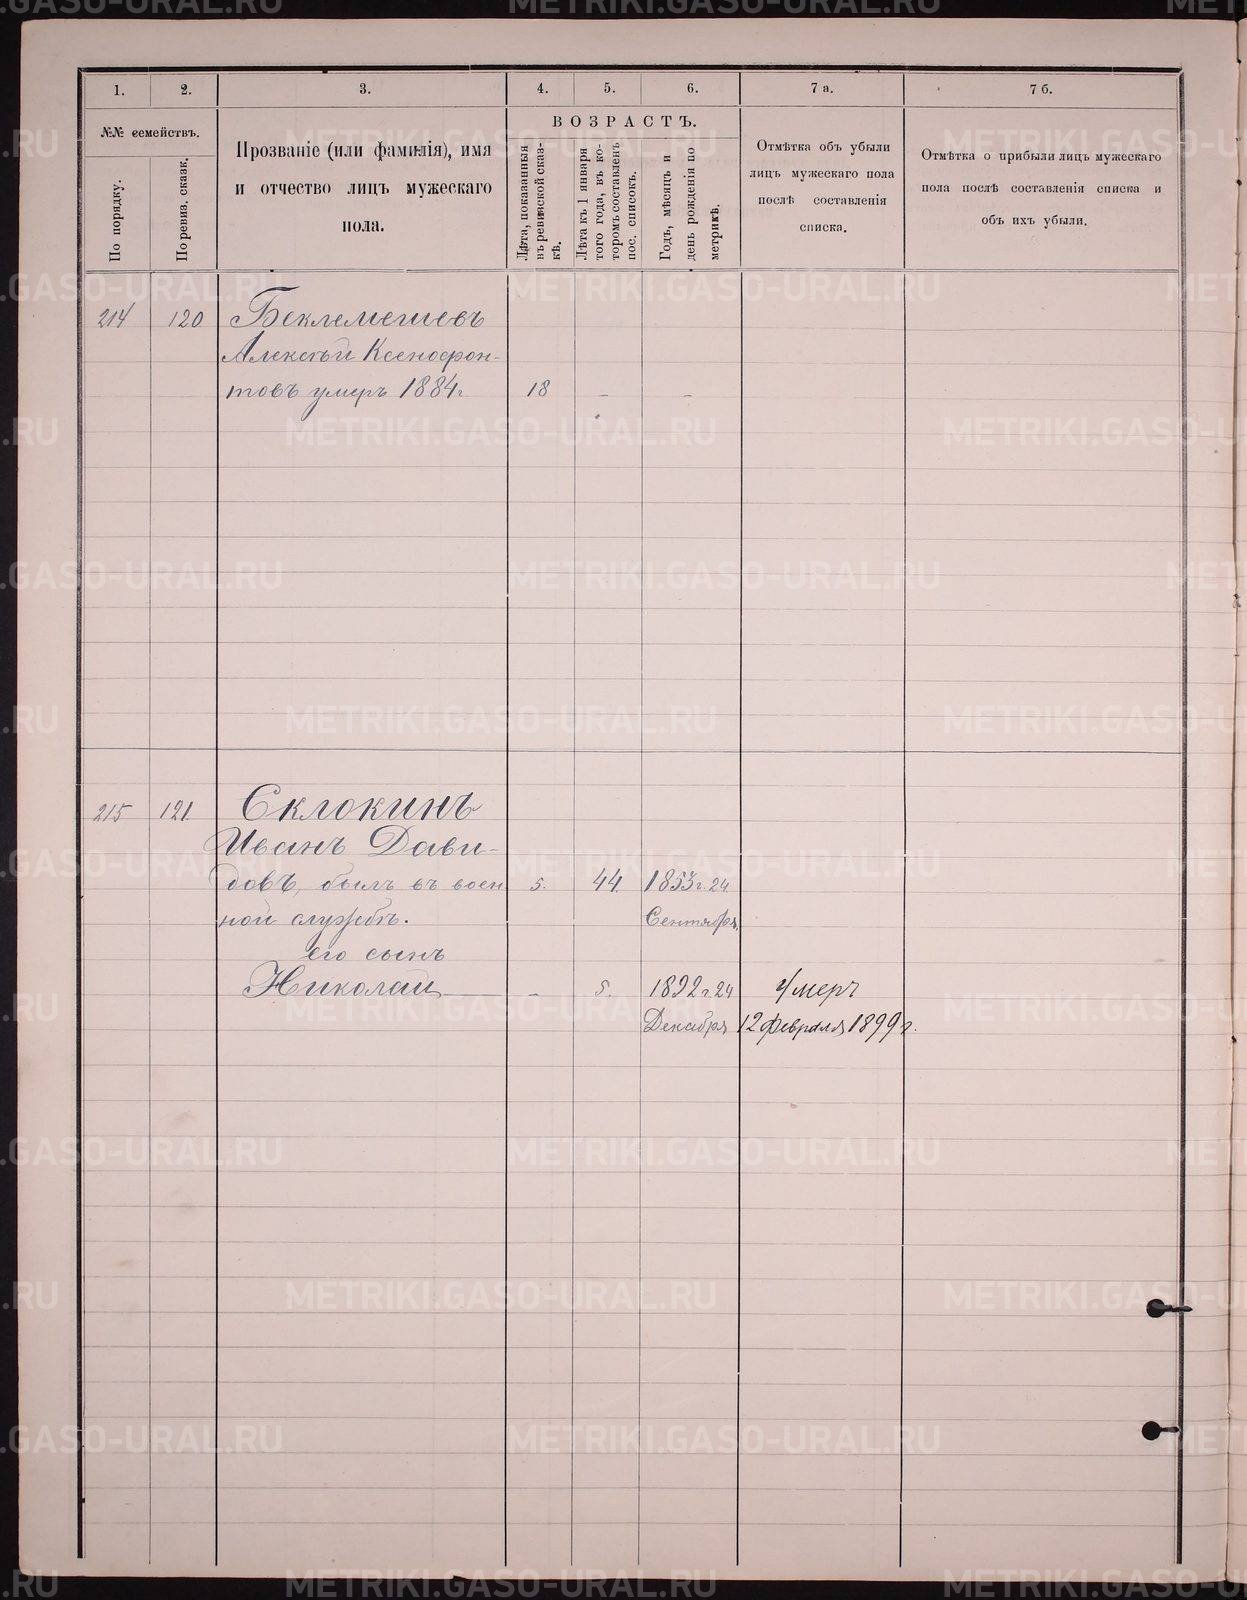 1.
2.
3.
4.
5.
6.
7 а.
7 б.
№№ семействъ.
По порядку.
По ревиз. сказк.
Прозваніе (или фамилія), имя
и отчество лицъ мужескаго
пола.
ВОЗРАСТЪ.
Лѣта, показанныя
въ ревизской сказ-
кѣ.
Лѣта къ 1 января
того года, въ ко-
торомъ составленъ
пос. списокъ.
Годъ, мѣсяцъ и
день рожденія по
метрикѣ.
Отмѣтка объ убыли
лицъ мужескаго пола
послѣ составленія
списка.
Отмѣтка о прибыли лицъ мужескаго
пола послѣ составленія списка и
объ ихъ убыли.
214 120 Беклемешевъ
Алексѣй Ксенофон-
товъ умеръ 1884г. 18 - -
215 121. Склокинъ
Иванъ Дави-
довъ, былъ въ воен 5. 44. 1853г. 24
ной службѣ. Сентября.
его сынъ
Николай — - 5. 1892г. 24 Умеръ
Декабря 12 февраля 1899 г.
METRIKI.GASO-URAL.RU